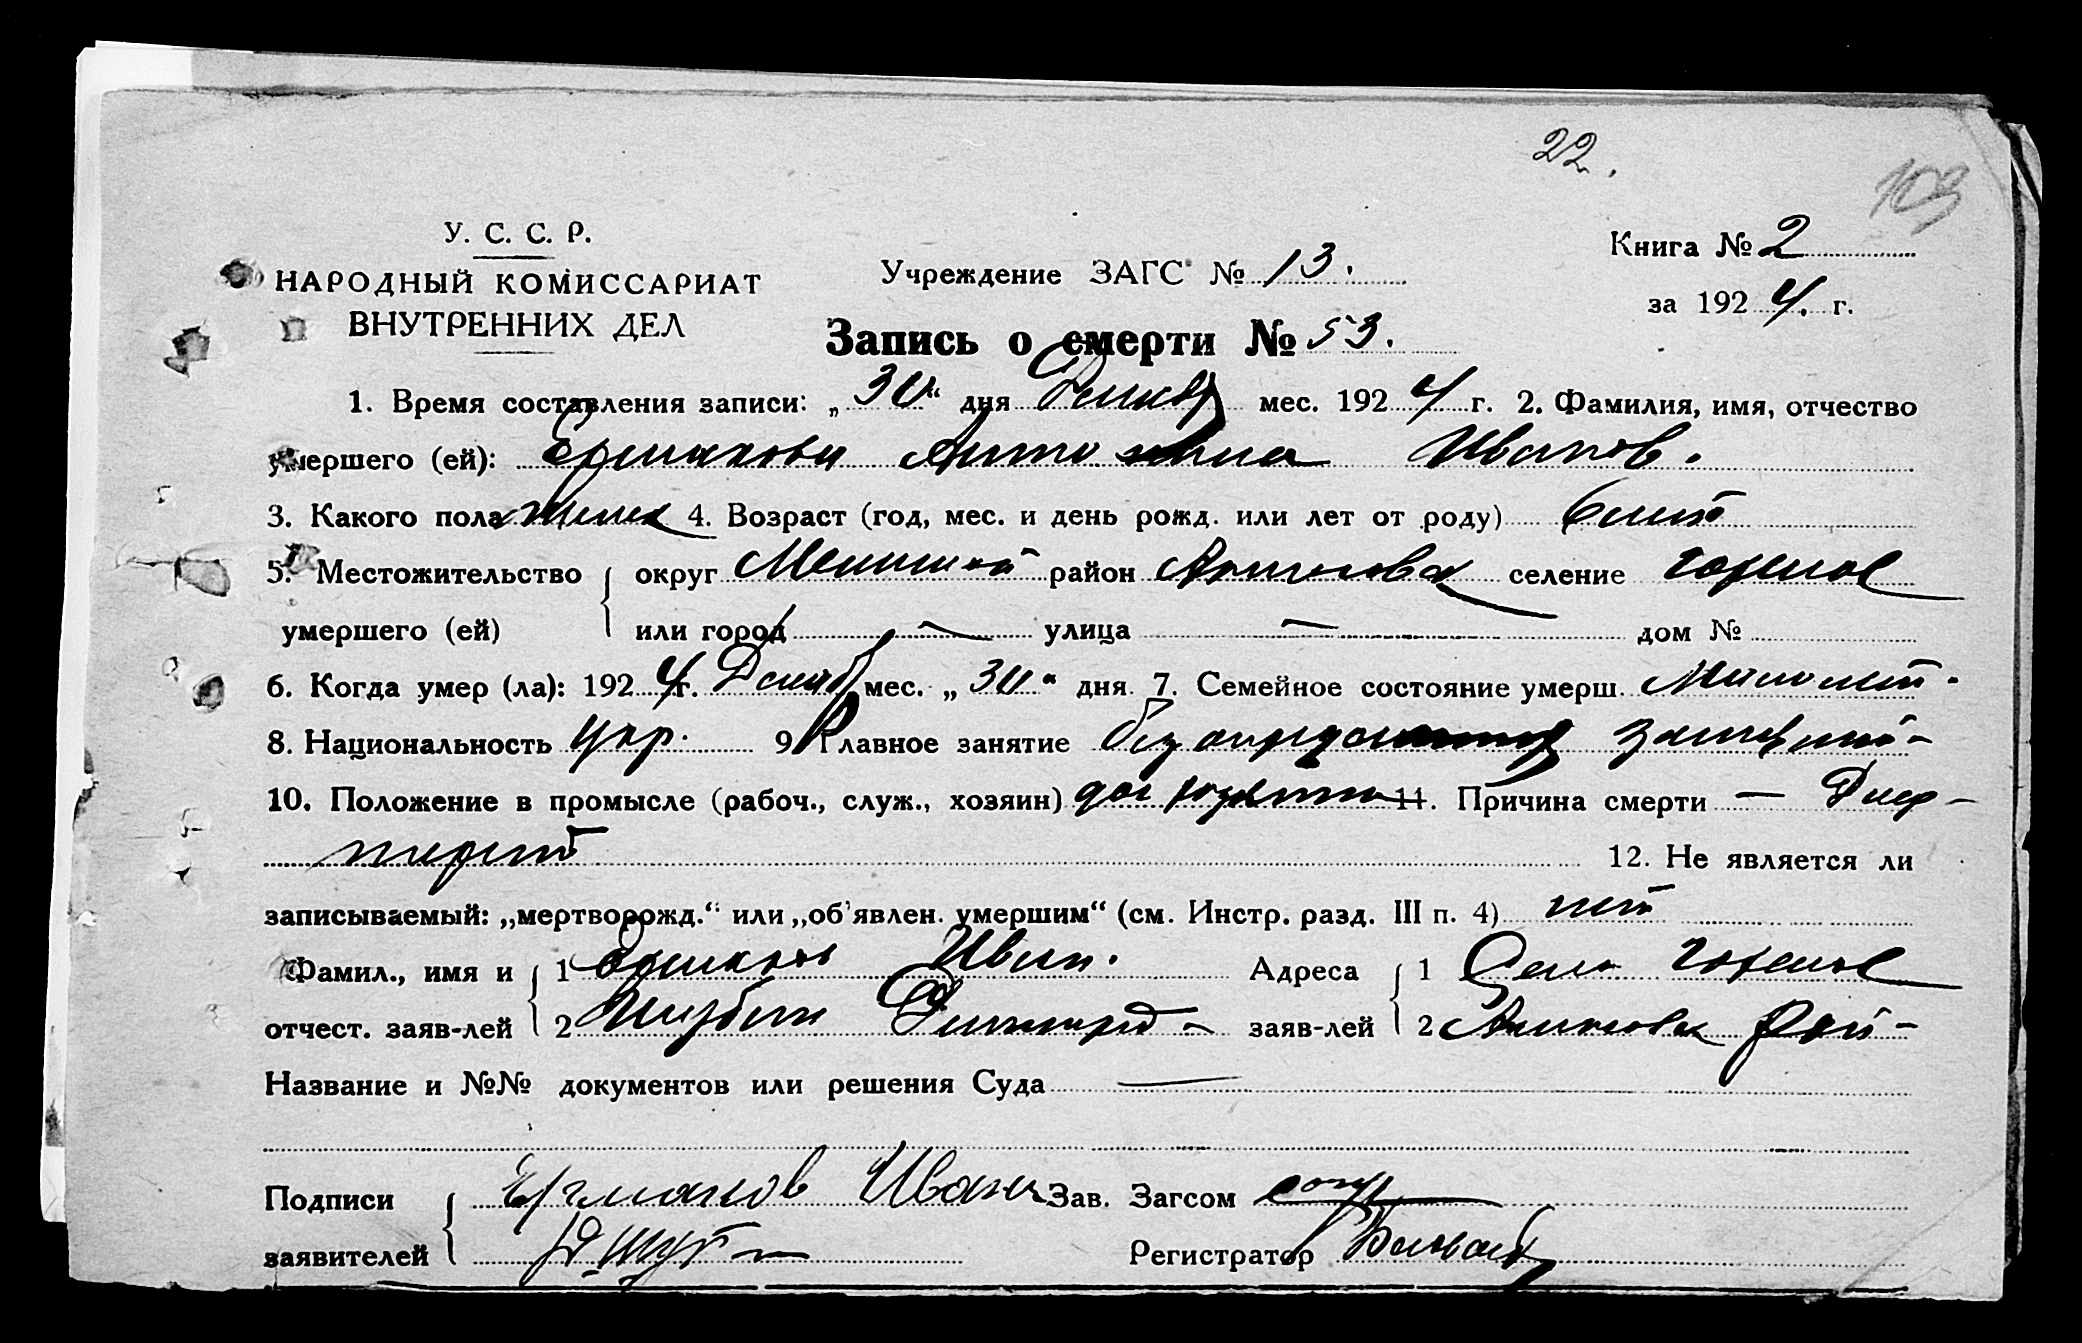 22.
103
У. С. С. Р.
НАРОДНЫЙ КОМИССАРИАТ
ВНУТРЕННИХ ДЕЛ
Учреждение ЗАГС № 13.
Книга № 2
за 1924. г.
Запись о смерти № 53.
1. Время составления записи: „30“ дня Декабр мес. 1924 г. 2. Фамилия, имя, отчество
умершего (ей): Ермакова Антонина Иванов.
3. Какого пола женск 4. Возраст (год, мес. и день рожд. или лет от роду) 6 лет
5. Местожительство округ район селение горелое
умершего (ей) или город — улица — дом №
6. Когда умер (ла): 1924 г. Декаб мес. „30“ дня 7. Семейное состояние умерш. Малолет-
8. Национальность укр. 9. Главное занятие
10. Положение в промысле (рабоч., служ., хозяин) 11. Причина смерти — Диф-
терит
12. Не является ли
записываемый: „мертворожд.“ или „об’явлен. умершим“ (см. Инстр. разд. III п. 4) нет
Фамил., имя и 1 Ермаков Иван. Адреса 1 Село горелое
отчест. заяв-лей 2 заяв-лей 2 рай-
Название и №№ документов или решения Суда —
Подписи Ермаков Иван Зав. Загсом
заявителей Регистратор